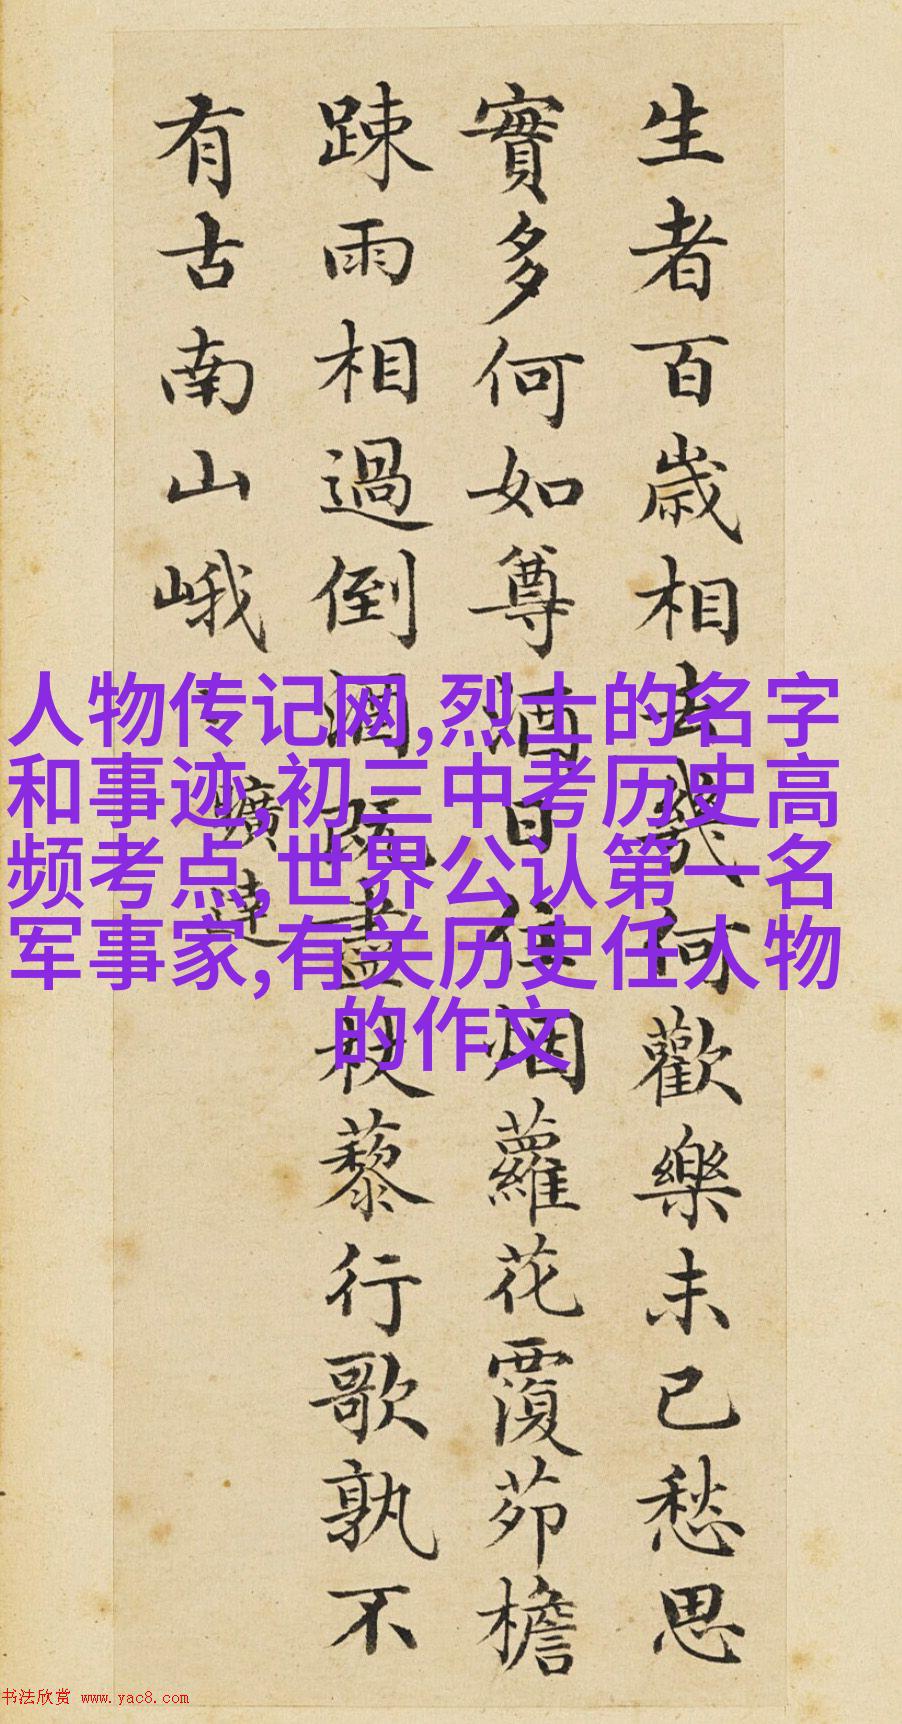 生者百歲相去幾何歡樂未已愁思
實多何如尊酒日往烟蘿花覆茆檐
踈雨相過倒酒既盡杖藜行歌孰不
有古南山峨
曠達
人物传记网,烈士的名字
和事迹,初三中考历史高
频考点,世界公认第一名
军事家,有关历史任人物
的作文
书法欣赏 www.yac8.com